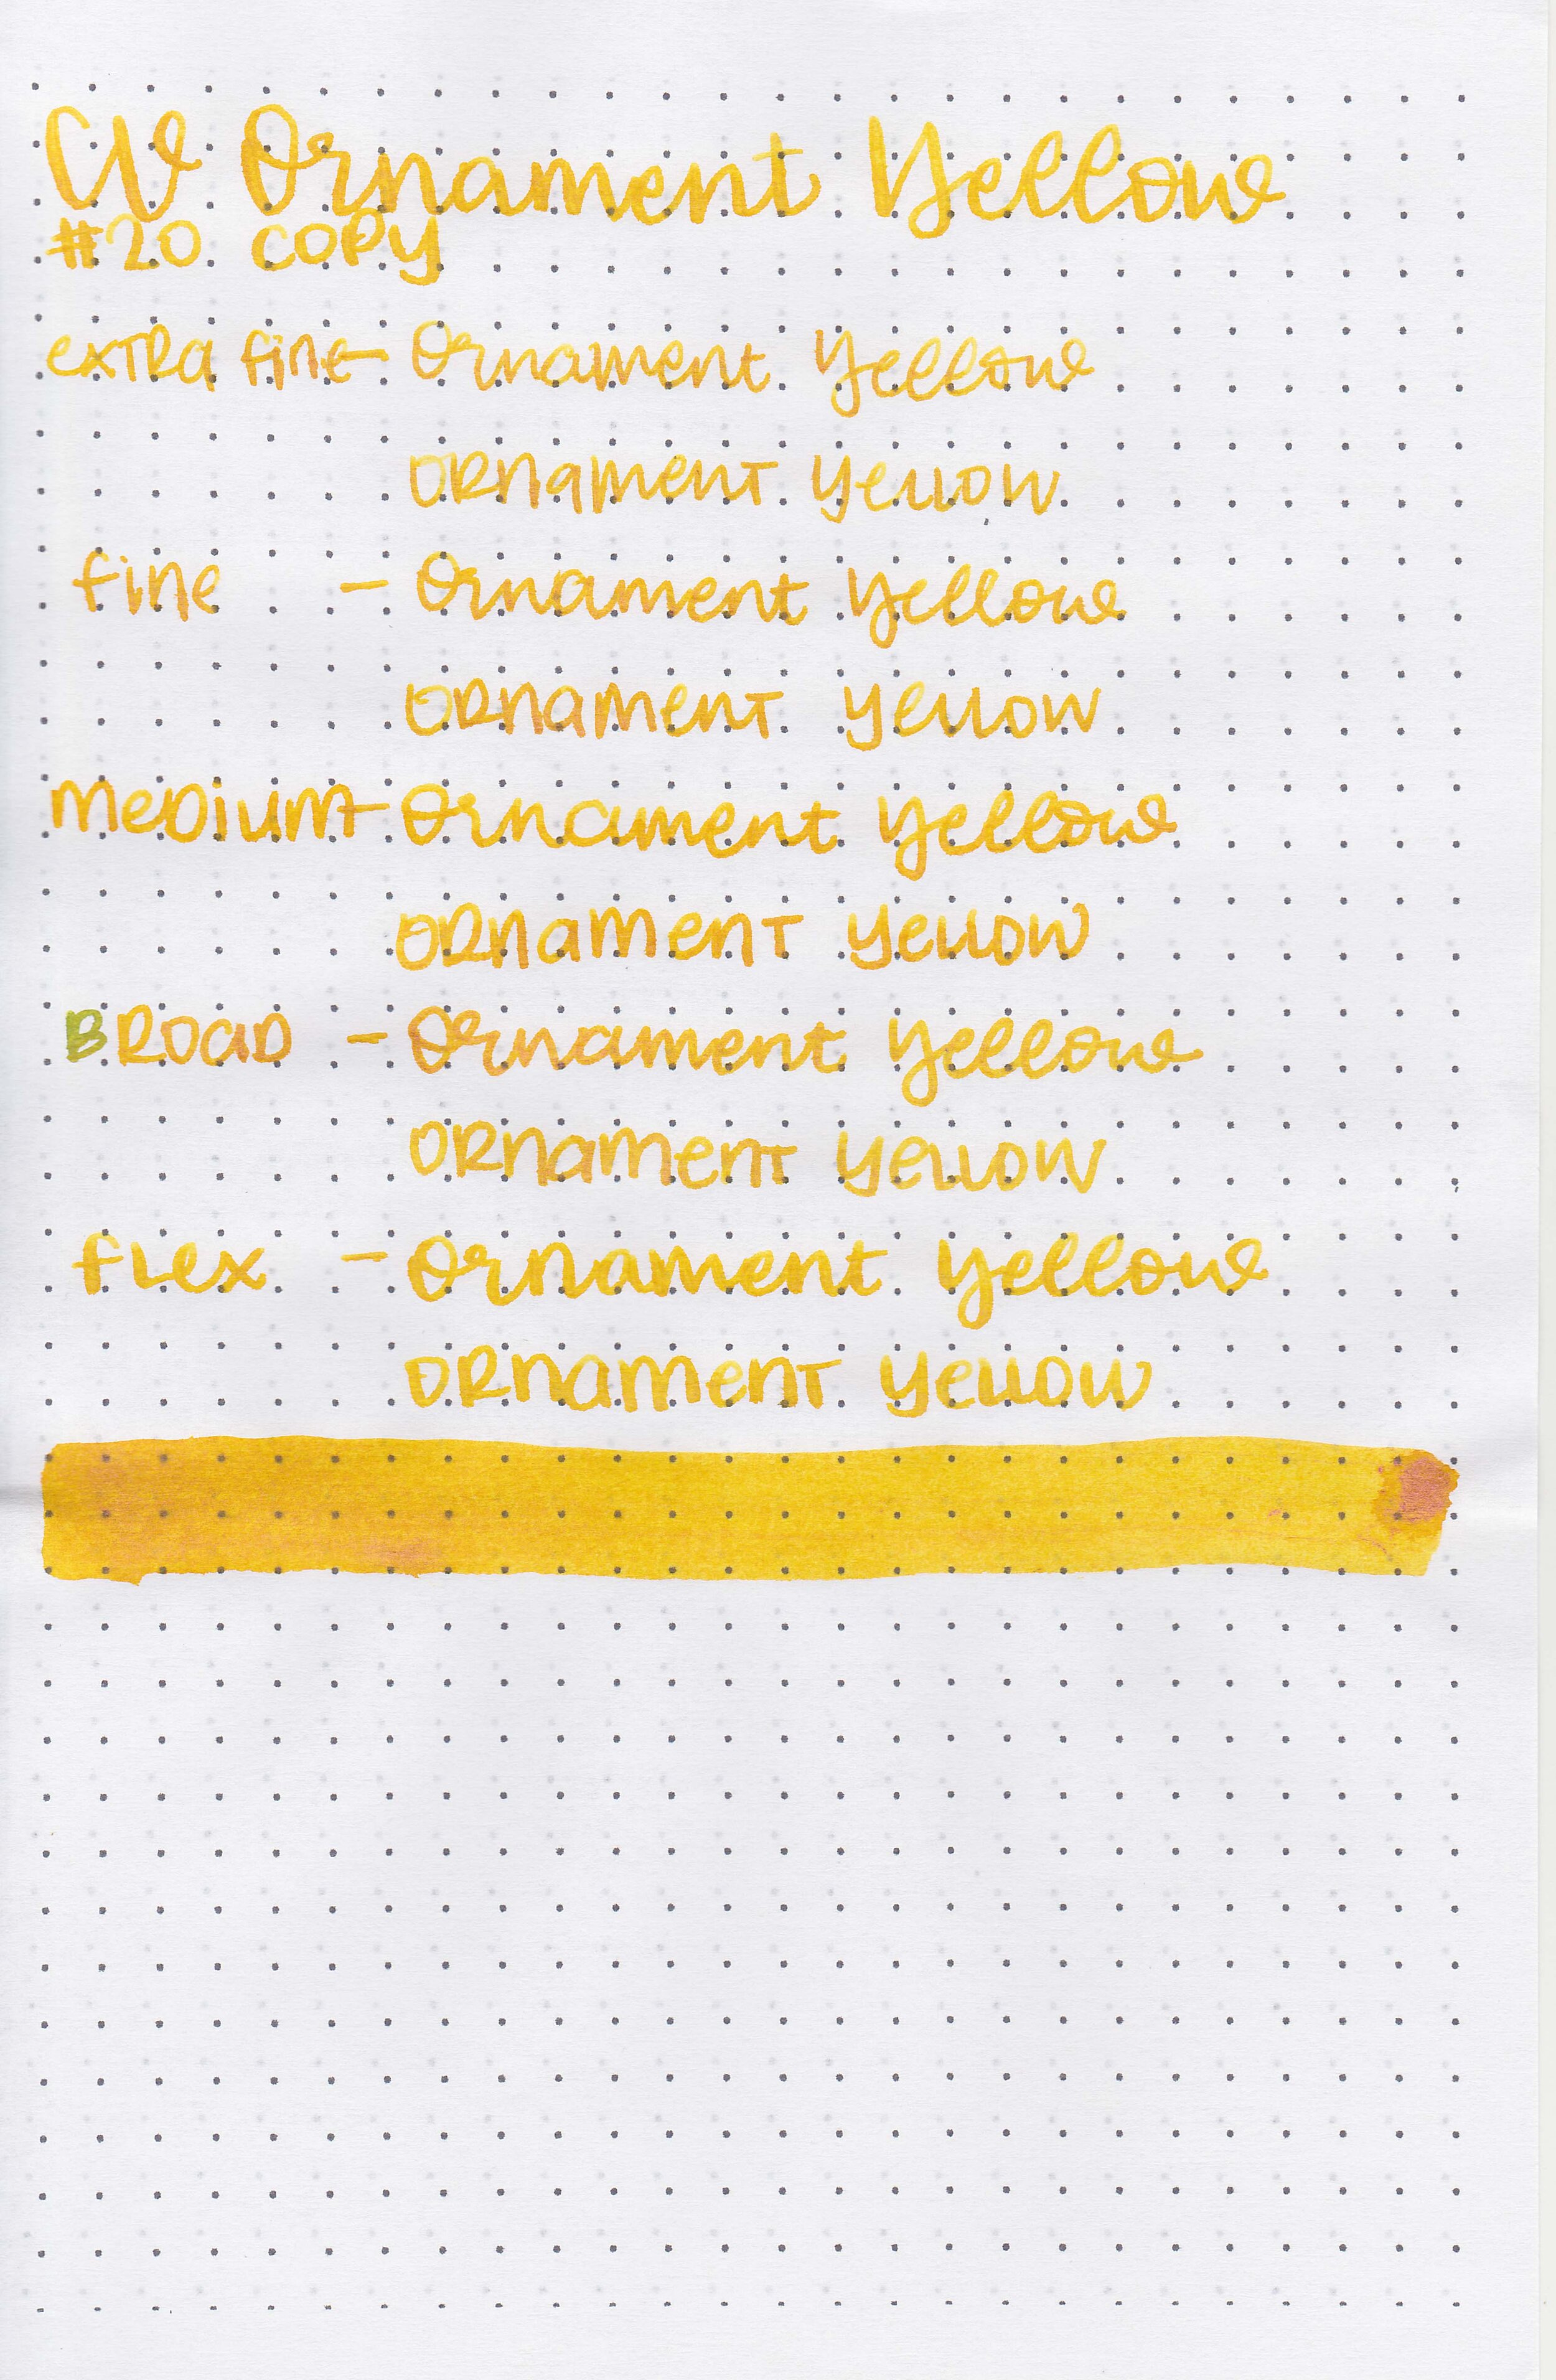 CV Ornament Yellow
#20 COPY
extra fine - Ornament Yellow
Ornament Yellow
fine - Ornament Yellow
Ornament Yellow
Medium - Ornament Yellow
Ornament Yellow
Broad - Ornament Yellow
Ornament Yellow
flex - Ornament Yellow
Ornament Yellow